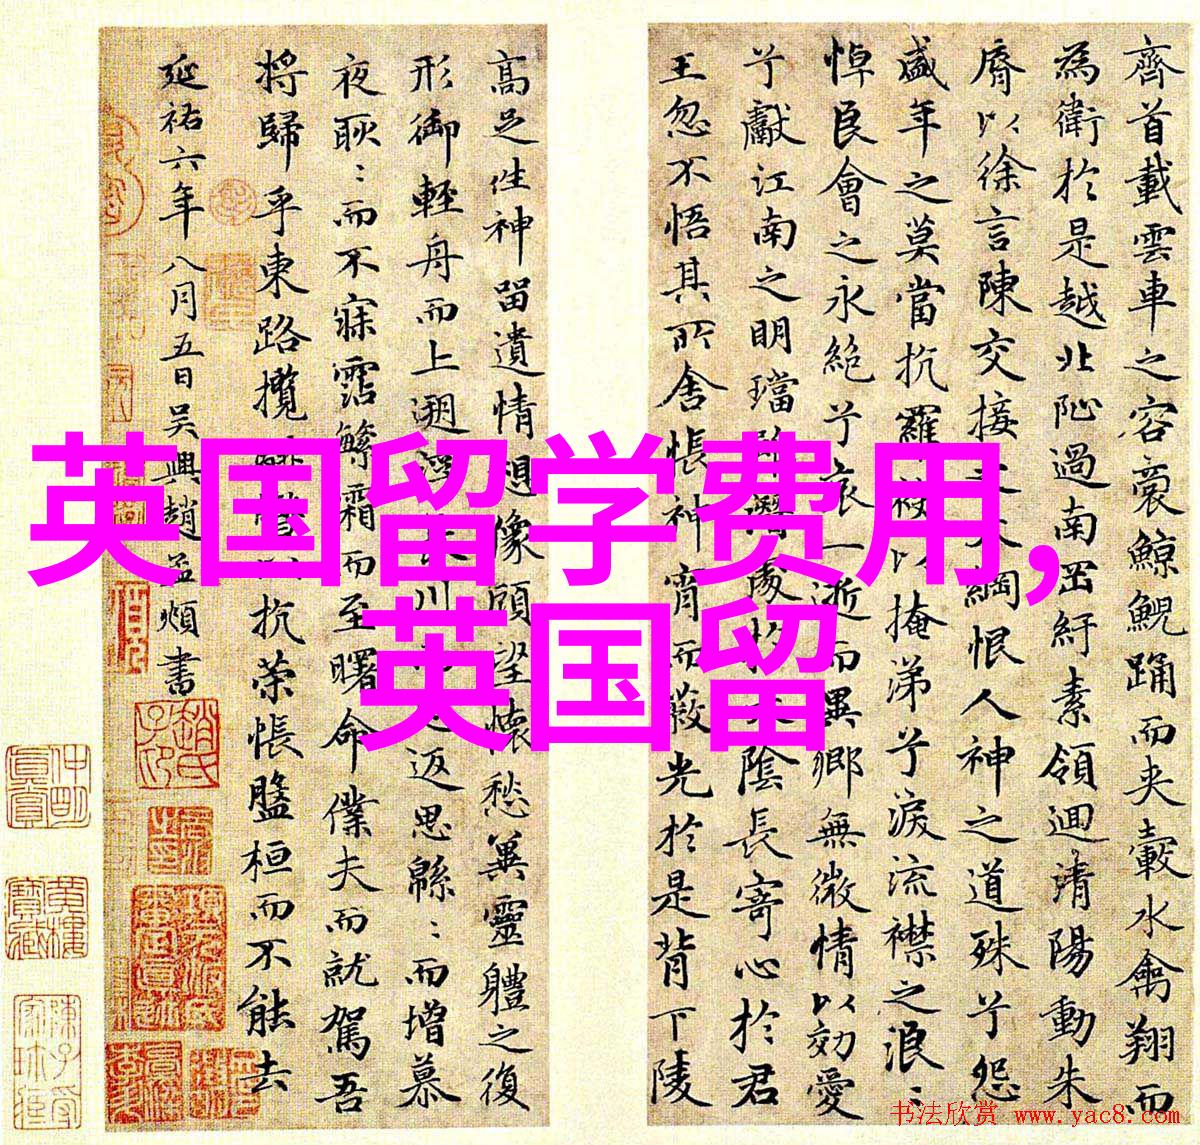 齊首載雲車之容裔鯨鯢踊而夾轂水禽翔而
為衛於是越北沚過南岡紆素領迴清陽動朱
脣以徐言陳交接之大綱恨人神之道殊兮怨
盛年之莫當抗羅袂以掩涕兮淚流襟之浪〻
悼良會之永絕兮哀一逝而異鄉無微情以効愛
兮獻江南之明璫雖潛處於太陰長寄心於君
王忽不悟其所舍悵神宵而蔽光於是背下陵
高足往神留遺情想像顧望懷愁冀靈軆之復
形御輕舟而上遡浮長川而忘返思緜〻而增慕
夜耿〻而不寐霑繁霜而至曙命僕夫而就駕吾
將歸乎東路攬抗策悵盤桓而不能去
延祐六年八月五日吳興趙孟頫書
英国留学费用,
英国留
书法欣赏 www.yac8.com